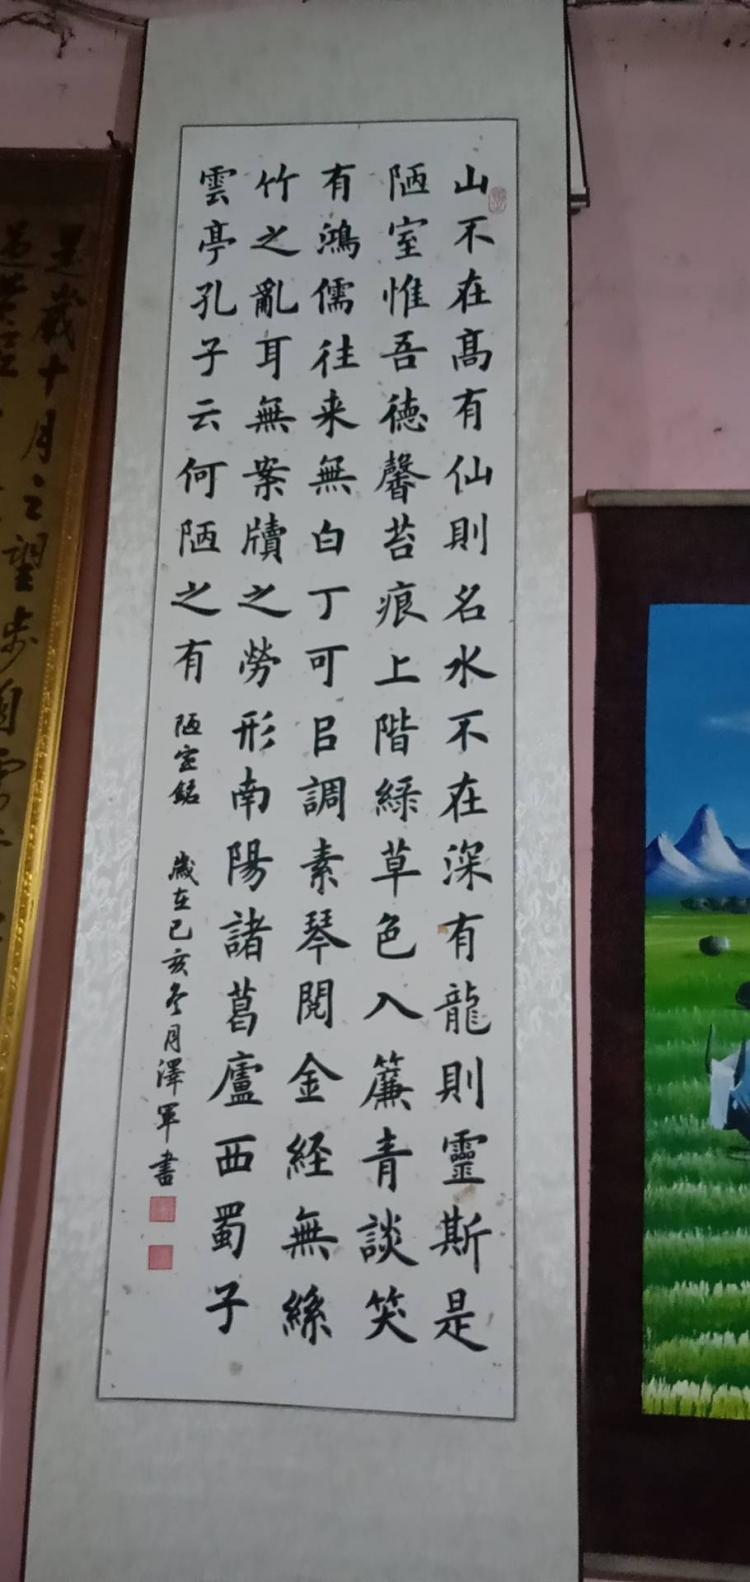 山不在高有仙則名水不在深有龍則靈斯是
陋室惟吾德馨苔痕上階綠草色入簾青談笑
有鴻儒往来無白丁可㠯調素琴閱金経無絲
竹之亂耳無案牘之勞形南陽諸葛廬西蜀子
雲亭孔子云何陋之有 陋室銘 歲在己亥冬月澤軍書
是歲十月之望步自雪